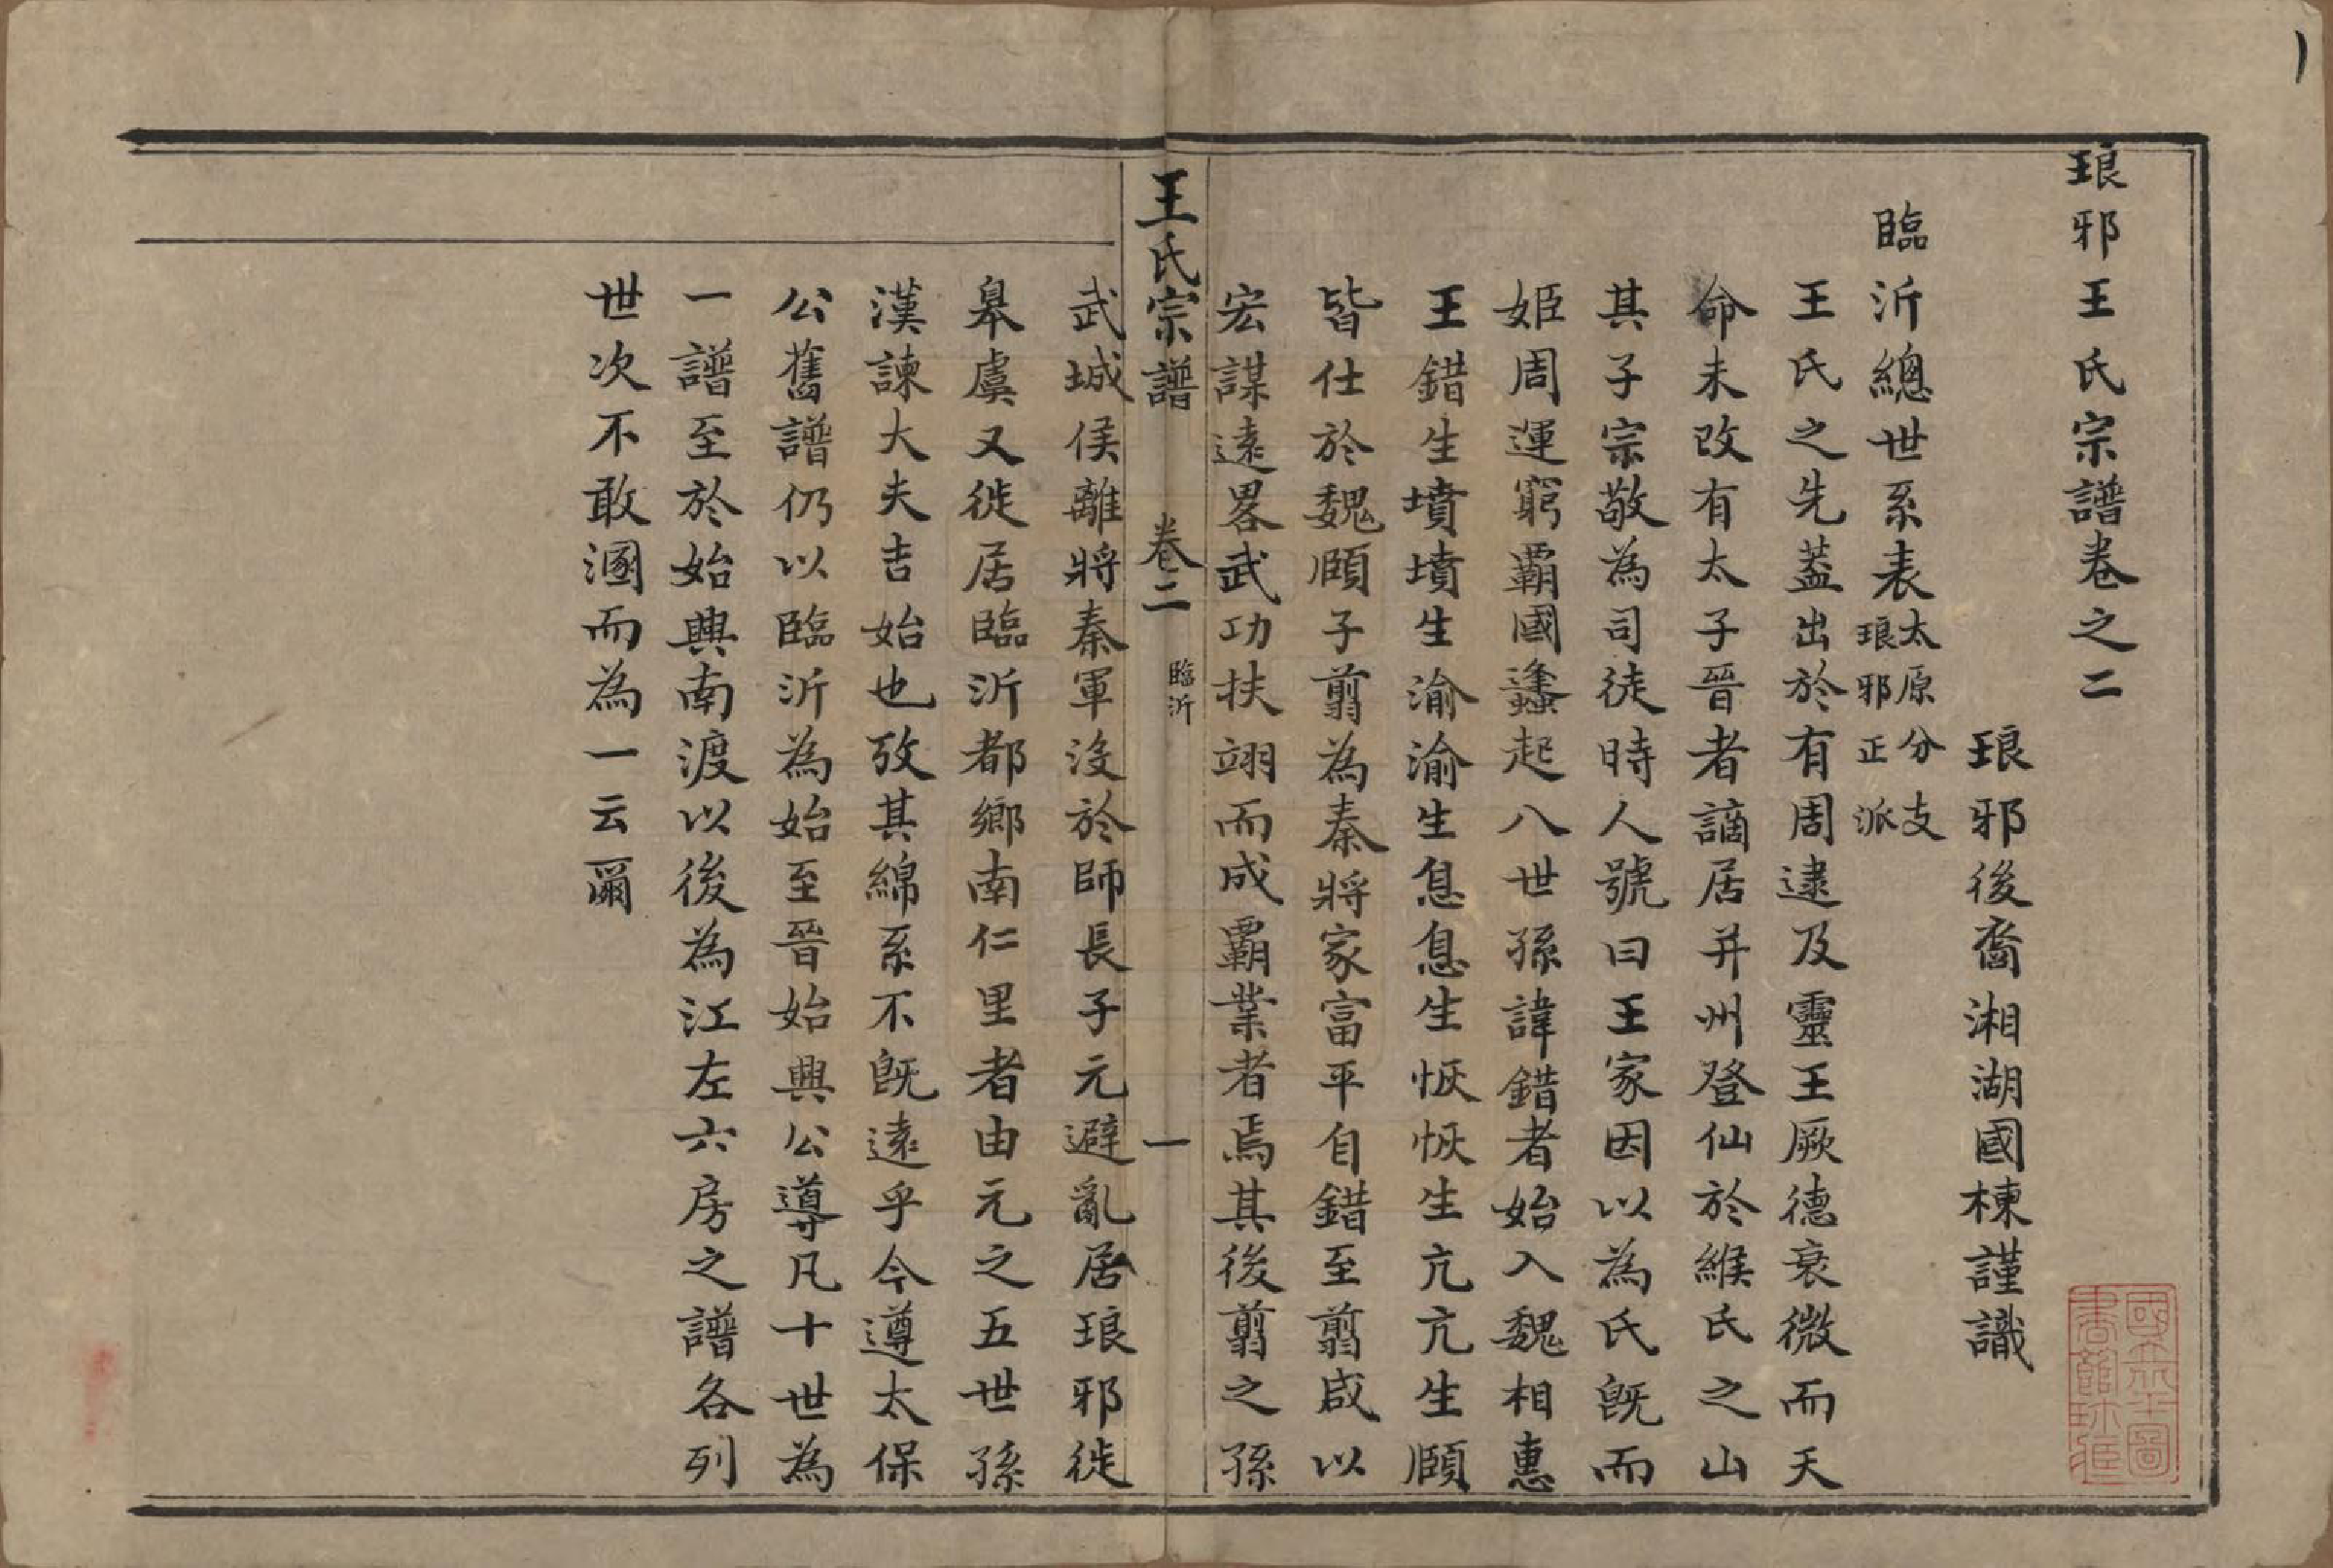 琅邪王氏宗譜卷之二
琅邪後裔湘湖國棟謹識
臨沂總世系表太原分支
琅邪正派
王氏之先蓋出於有周逮及靈王厥德衰微而天
命未改有太子晉者謫居并州登仙於緱氏之山
其子宗敬為司徒時人號曰王家因以為氏旣而
姬周運窮霸國蠭起八世孫諱錯者始入魏相惠
王錯生墳墳生渝渝生息息生恢恢生亢亢生頤
皆仕於魏頤子翦為秦將家富平自錯至翦咸以
宏謀遠畧武功扶翊而成霸業者焉其後翦之孫
王氏宗譜
卷二
臨沂
一
武城侯離將秦軍沒於師長子元避亂居琅邪徙
臯虞又徙居臨沂都鄉南仁里者由元之五世孫
漢諫大夫吉始也攷其綿系不旣遠乎今遵太保
公舊譜仍以臨沂為始至晉始興公導凡十世為
一譜至於始興南渡以後為江左六房之譜各列
世次不敢溷而為一云爾
國立北平圖
書館珍藏
1